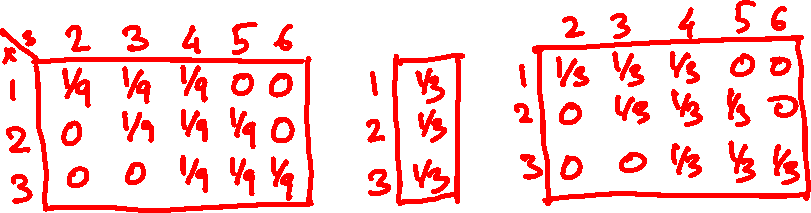 x s 2 3 4 5 6
1 1/9 1/9 1/9 0 0
2 0 1/9 1/9 1/9 0
3 0 0 1/9 1/9 1/9
1 1/3
2 1/3
3 1/3
2 3 4 5 6
1 1/3 1/3 1/3 0 0
2 0 1/3 1/3 1/3 0
3 0 0 1/3 1/3 1/3